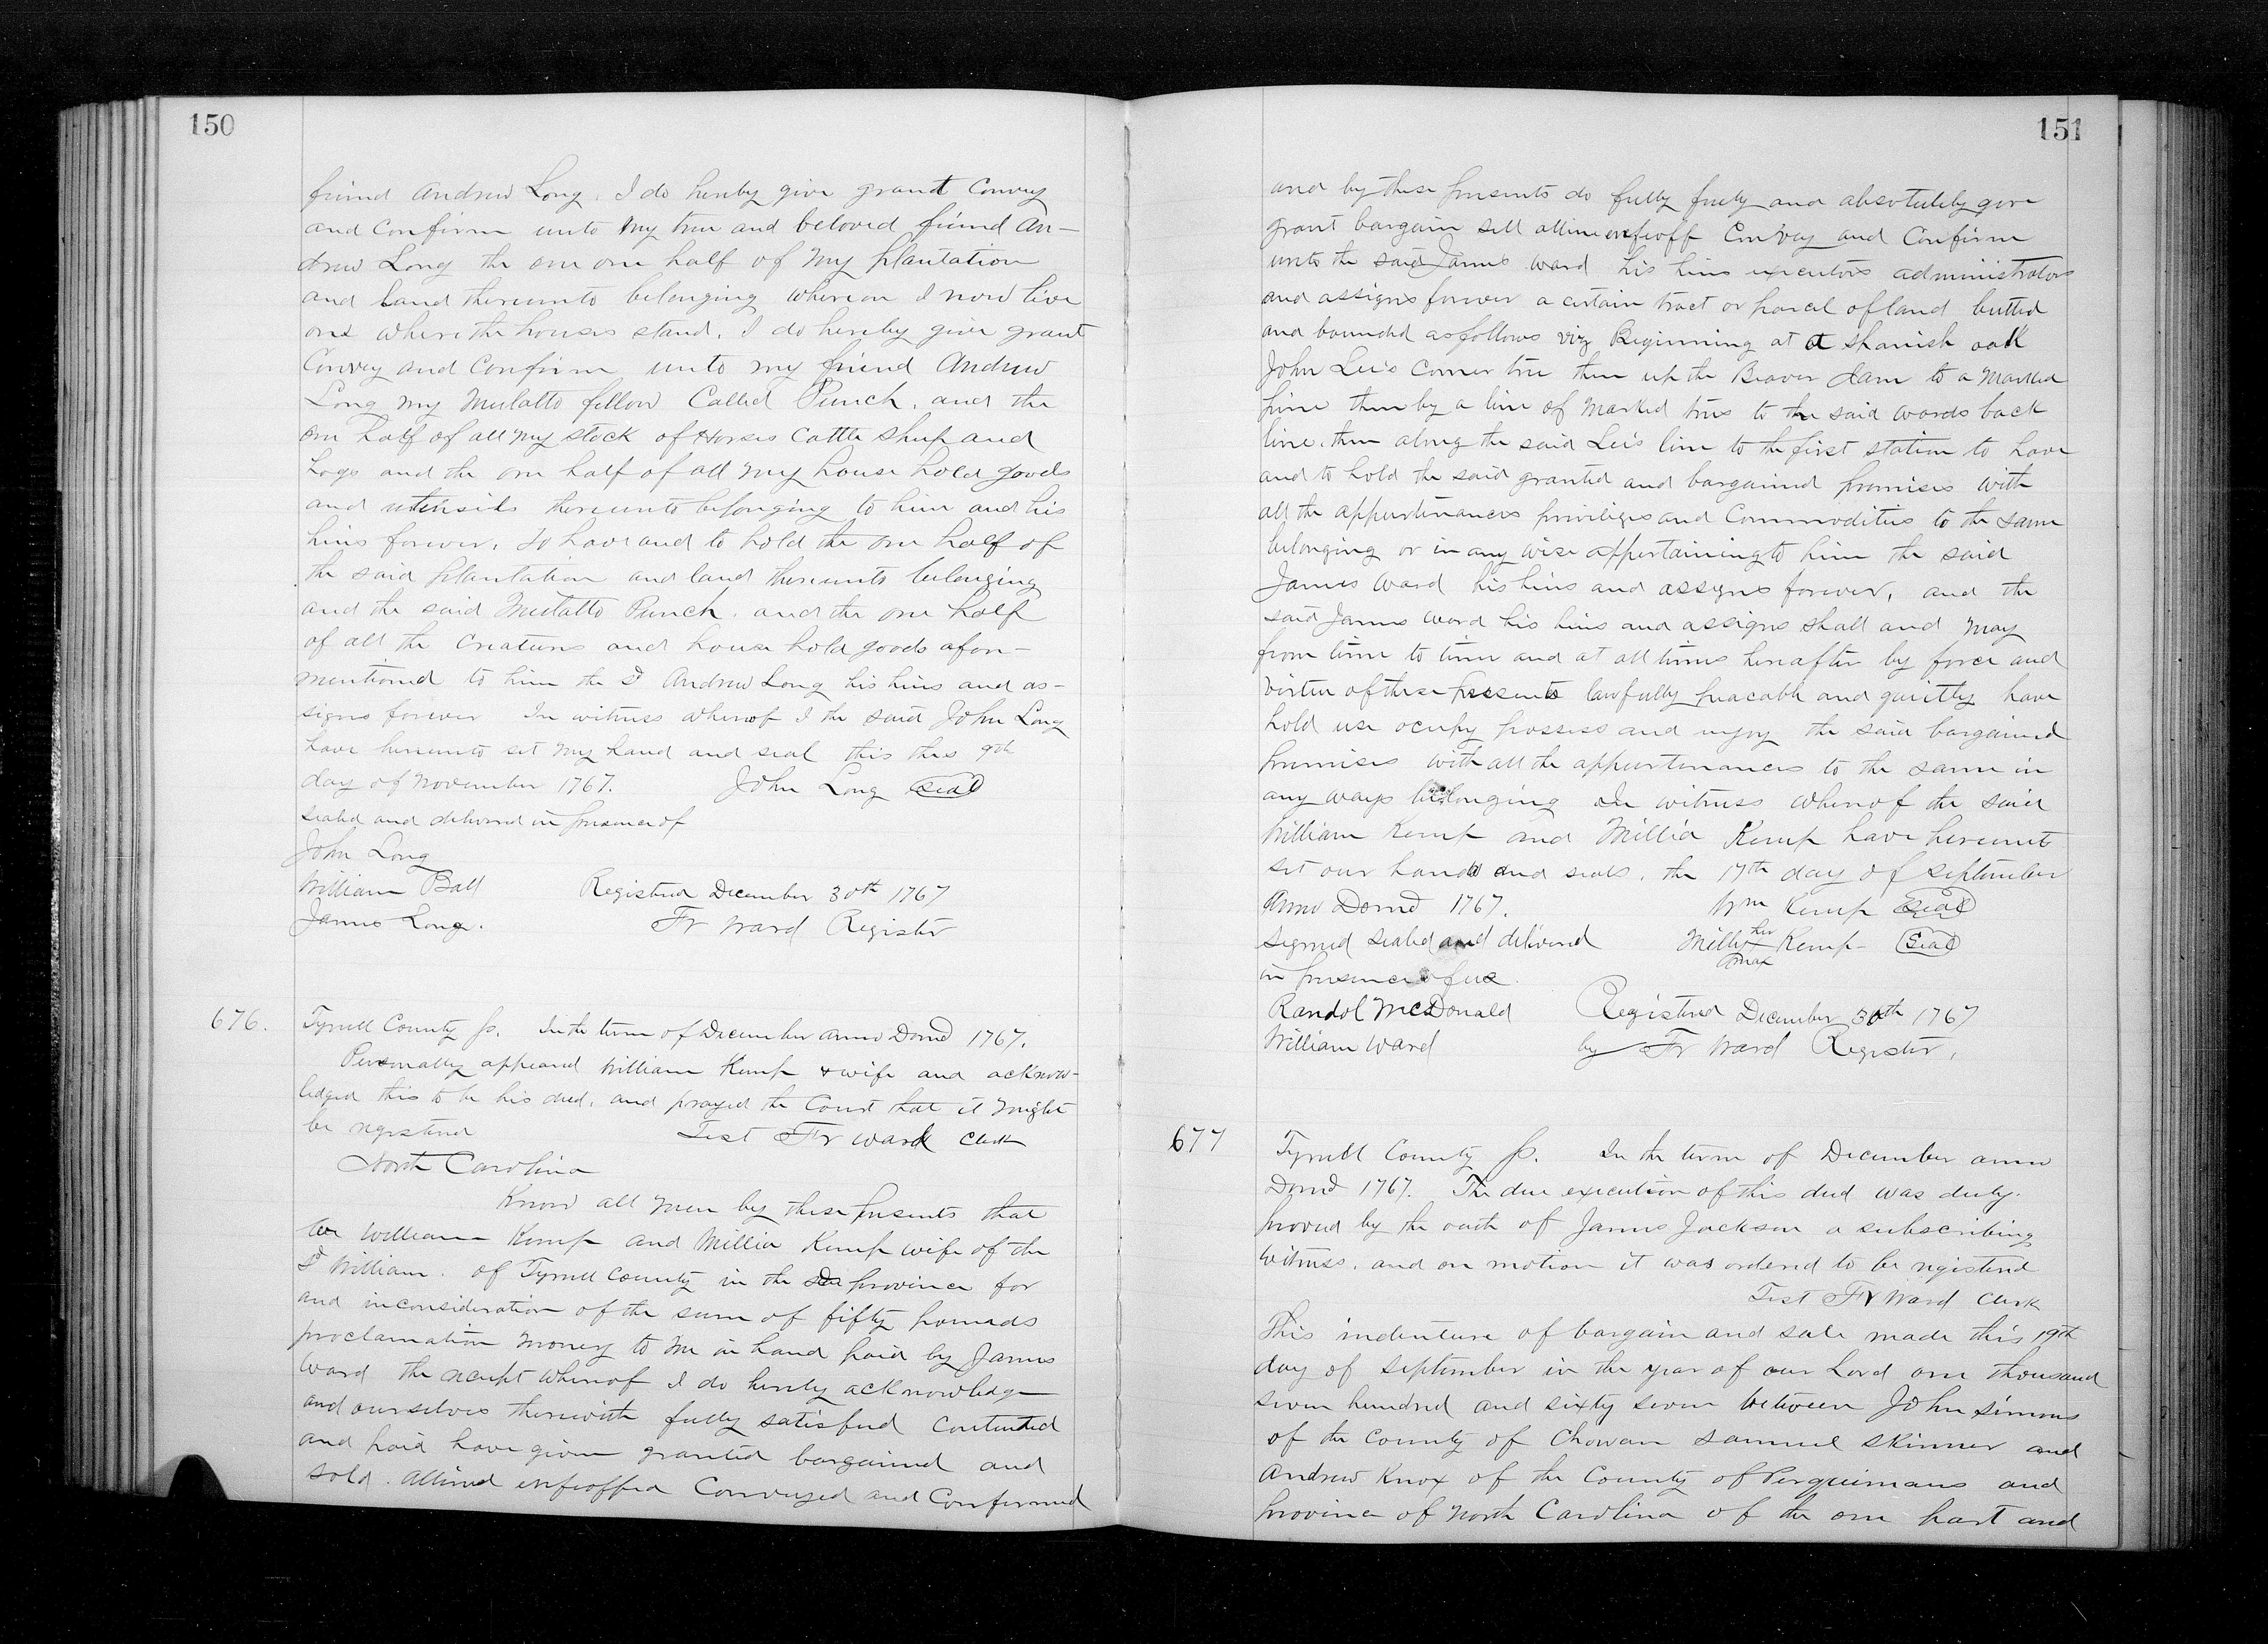 150
friend Andrew Long. I do hereby give grant Convey
and Confirm unto my true and beloved friend An-
drew Long the one one half of my plantation
and land thereunto belonging whereon I now live
one where the houses stand. I do hereby give grant
Convey and Confirm unto my friend Andrew
Long my Mulatto fellow Called Punch. and the
one half of all my stock of Horses Cattle Sheep and
hogs and the one half of all my house hold goods
and utensils thereunto belonging to him and his
heirs forever. To have and to hold the one half of
the said plantation and land thereunto belonging
and the said Mulatto Punch. and the one half
of all the Creatures and house hold goods afore-
mentioned to him the Sd Andrew Long his heirs and as-
signs forever In witness whereof I the said John Long
have hereunto set my hand and seal this this 9th
day of November 1767. John Long Seal
sealed and delivered in presence of
John Long
William Ball Registered December 30th 1767
James Long. Fr Ward Register
676. Tyrrell County Ss. In the term of December anno Domd 1767.
Personally appeared William Kemp & wife and acknow-
ledged this to be his deed. and prayed the Court that it might
be registered Test Fr Ward Clerk
North Carolina
Know all men by these presents that
we William Kemp and Millia Kemp wife of the
Sd William. of Tyrrell County in the sd province for
and inconsideration of the sum of fifty pounds
proclamation money to me in hand paid by James
Ward the receipt whereof I do hereby acknowledge
and ourselves therewith fully satisfied Contented
and paid have given granted bargained and
sold. aliened enfeoffed Conveyed and Confirmed
151
and by these presents do fully freely and absolutely give
grant bargain sell aliene enfeoff Convey and Confirm
unto the said James Ward his heirs executors administrators
and assigns forever a certain tract or parcel of land butted
and bounded as follows viz Beginning at a Spanish oak
John Lee's Corner tree then up the Beaver dam to a Marked
pine then by a line of Marked trees to the said Wards back
line. then along the said Lee's line to the first station to have
and to hold the said granted and bargained premises with
all the appurtenances priviliges and Commodities to the same
belonging or in any wise appertaining to him the said
James Ward his heirs and assigns forever. and the
said James Ward his heirs and assigns shall and may
from time to time and at all times hereafter by force and
virtue of these presents lawfully peacable and quietly have
hold use ocupy possess and enjoy the said bargained
premises with all the appurtenances to the same in
any ways belonging In witness whereof the said
William Kemp and Millia Kemp have hereunto
set our hands and seals. the 17th day of September
Anno Domd 1767. Wm Kemp Seal
Signed sealed and delivered Milly her Kemp Seal
mark
in presence of us.
Randol McDonald Registered December 30th 1767
William Ward by Fr Ward Register.
677 Tyrrell County Ss. In the term of December anno
Domd 1767. The due execution of this deed was duly.
proved by the oath of James Jackson a subscribing
witness. and on motion it was ordered to be registered
Test Fr Ward Clerk
This indenture of bargain and sale made this 19th
day of September in the year of our Lord one thousand
seven hundred and sixty seven between John Simons
of the County of Chowan Samuel Skinner and
Andrew Knox of the County of Perquimans and
province of North Carolina of the one part and